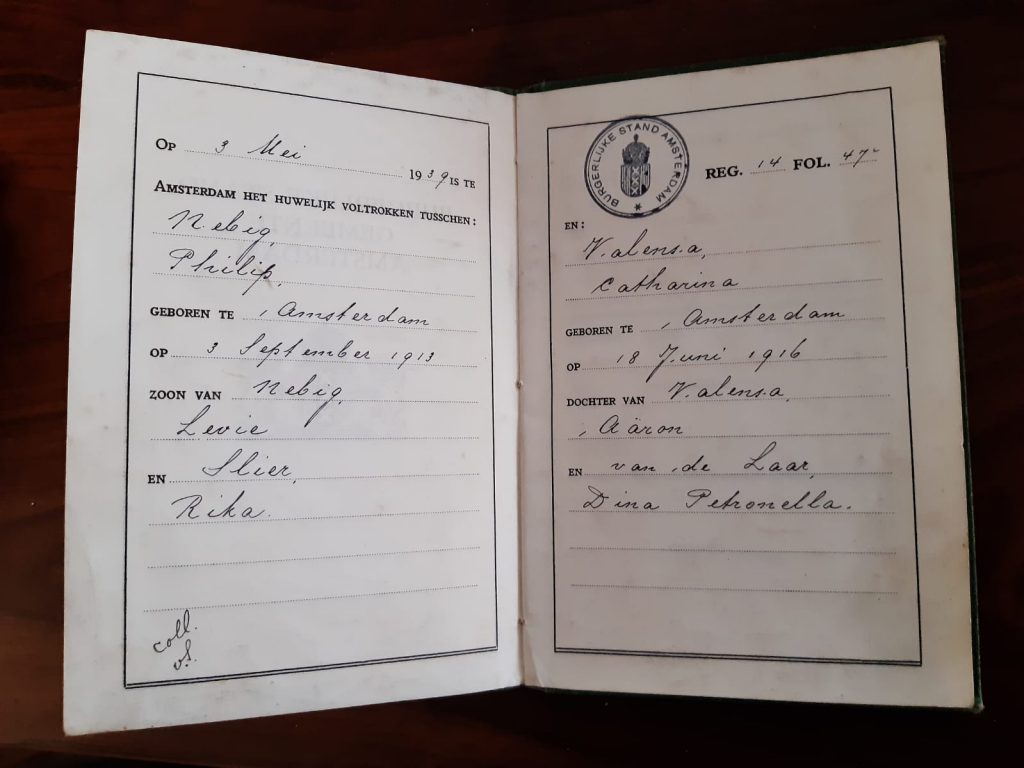 Op 3 Mei 1939 is te
Amsterdam het huwelijk voltrokken tusschen:
Nebig,
Philip,
geboren te Amsterdam
op 3 September 1913
zoon van Nebig,
Levie
en Slier,
Rika.
coll.
BURGERLIJKE STAND AMSTERDAM
REG. 14 FOL. 47
en:
Valensa,
Catharina
geboren te Amsterdam
op 18 Juni 1916
dochter van Valensa,
Aäron
en van de Laar,
Dina Petronella.